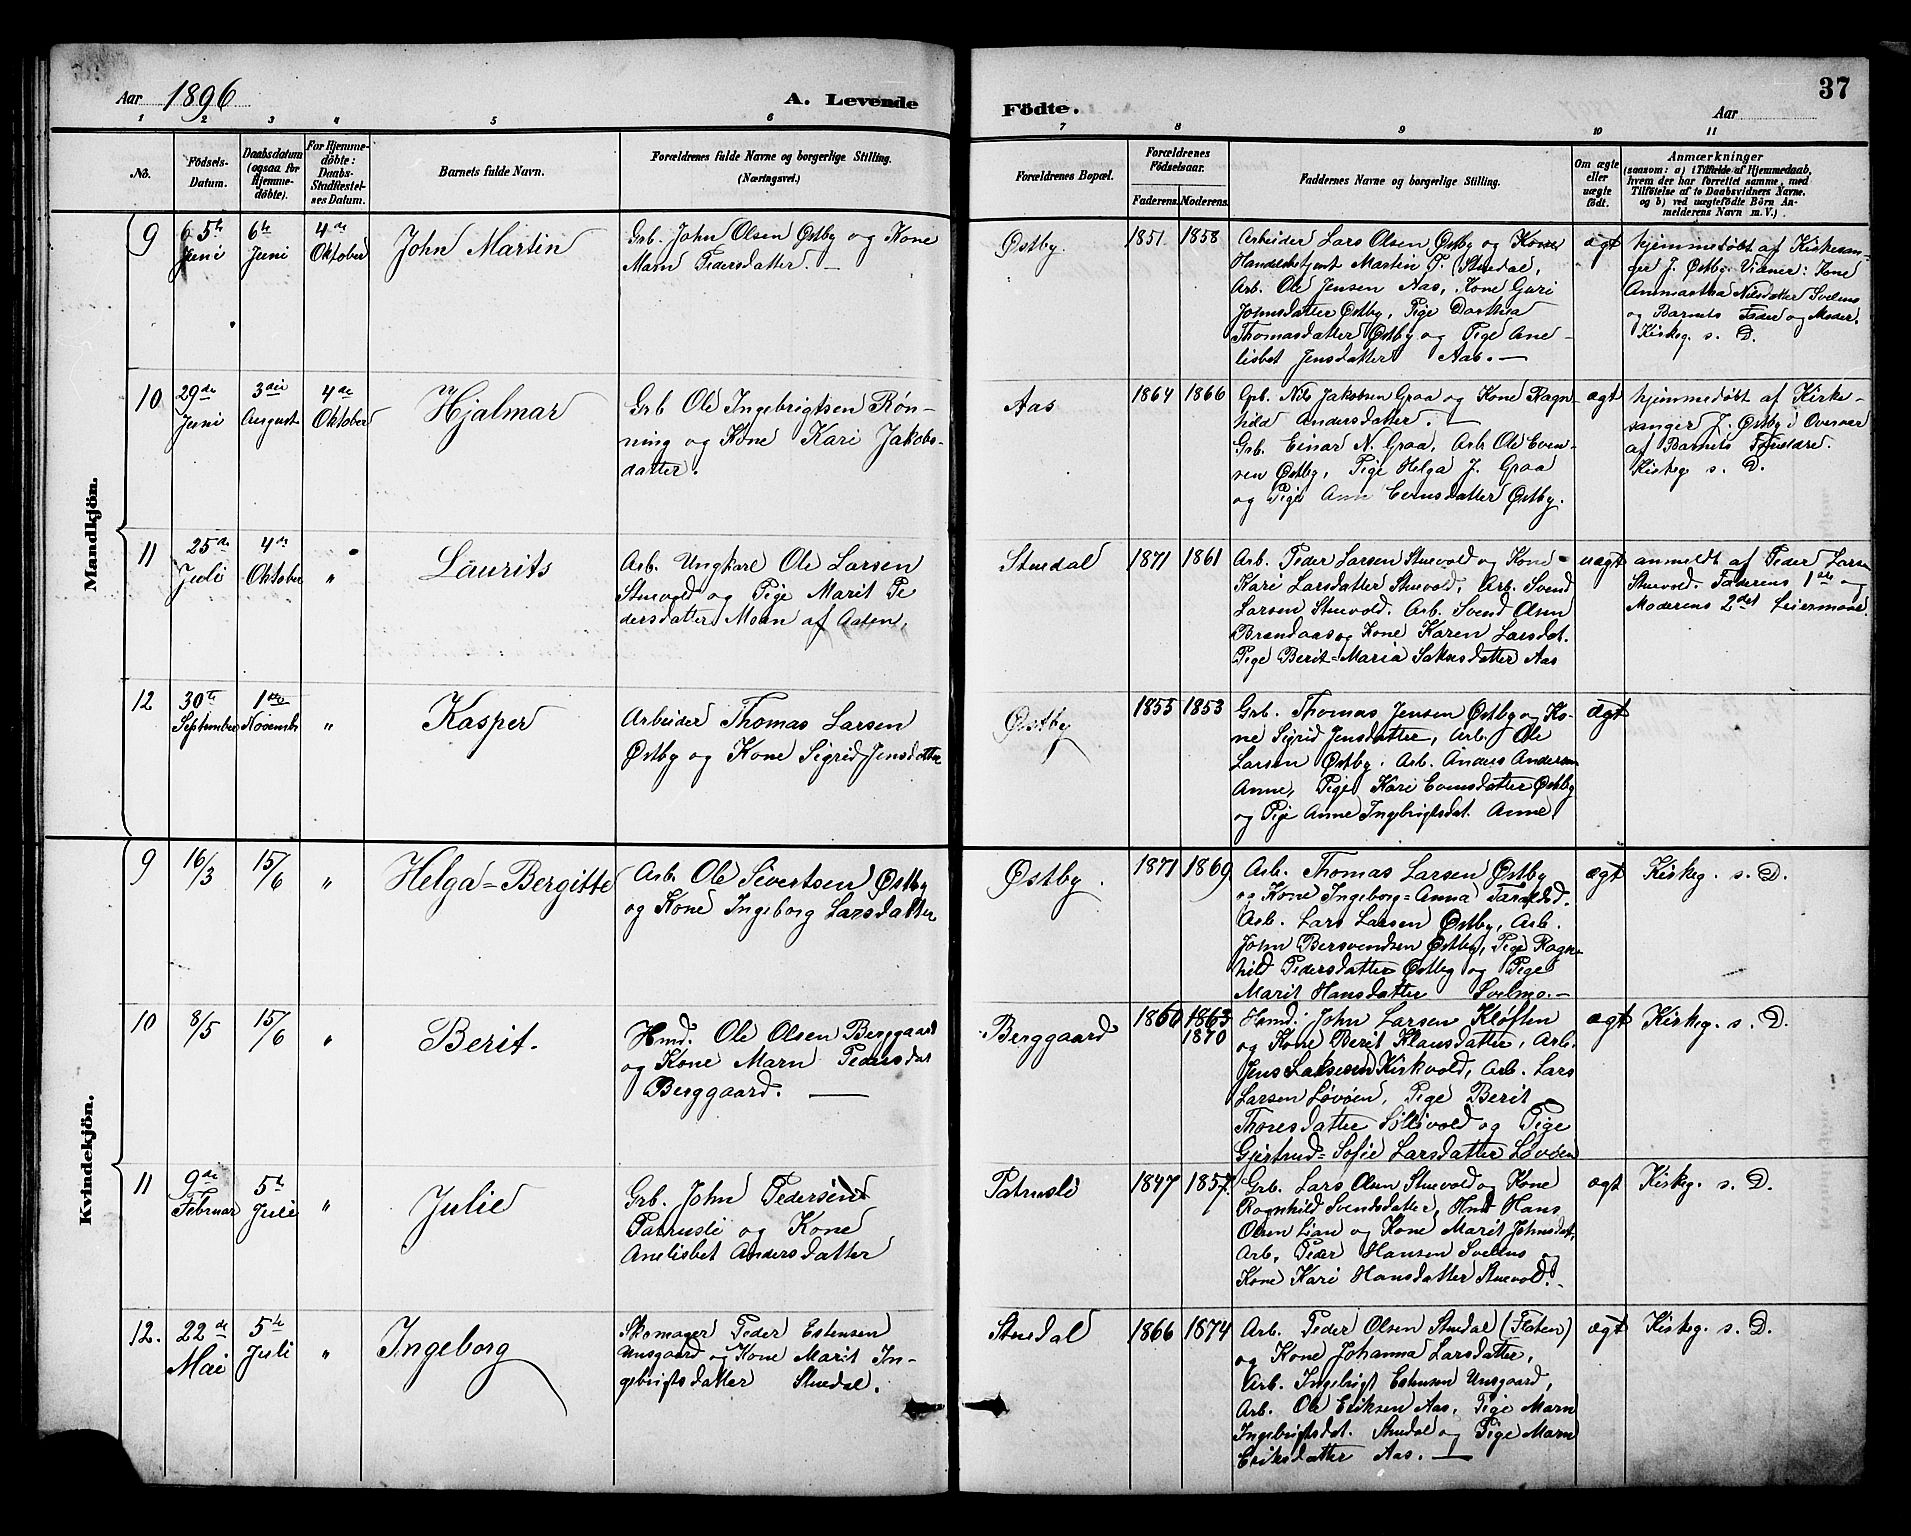 Aar 1896
A. Levende
Födte.
37
Aar
1 2 3 4 5 6 7 8 9 10 11
No.
Födsels-
Datum.
Daabsdatum
(ogsaa for
Hjemme-
döbte).
For Hjemme-
döbte:
Daabs-
Stadfæstel-
ses Datum.
Barnets fulde Navn.
Forældrenes fulde Navne og borgerlige Stilling.
(Næringsvei.)
Forældrenes Bopæl.
Forældrenes
Födselsaar.
Faderens. Moderens.
Faddernes Navne og borgerlige Stilling.
Om ægte
eller
uægte
födt.
Anmærkninger
(saasom: a) i Tilfælde af Hjemmedaab,
hvem der har forrettet samme, med
Tilföielse af to Daabsvidners Navne.
og b) ved uægtefödte Börn An-
melderens Navn m. V.)
Mandkjön.
9
5te
Juni
6te
Juni
4de
Oktober
John Martin
Grb. John Olsen Østby og Kone
Marn Pedersdatter. —
Østby.
1851. 1858
Arbeider Lars Olsen Østby og Kone
Handelsbetjent Martin P. Stuedal,
Arb. Ole Jensen Aas, Kone Guri
Johnsdatter Østby, Pige Dorthea
Thomasdatter Østby og Pige Ane-
lisbet Jensdatter Aas. —
ægt
hjemmedøbt af Kirkesan-
ger J. Østby. Vidner: Kone
Anmartha Nilsdatter Svelmo
og Barnets Fader og Moder.
Kirkeg. s. D.
10
29de
Juni
3die
August
4de
Oktober
Hjalmar
Grb Ole Ingebrigtsen Røn-
ning og Kone Kari Jakobs-
datter.
Aas
1864 1866
Grb. Nils Jakobsen Graa og Kone Ragn-
hild Andersdatter. —
Grb. Einar N. Graa, Arb. Ole Even-
sen Østby, Pige Helga J. Graa
og Pige Anne Evensdatter Østby.
ægt
hjemmedøbt af Kirke-
sanger J. Østby i Overvær
af Barnets Forældre.
Kirkeg. s. D.
11
25de
Juli
4de
Oktober
"
Laurits
Arb. Ungkarl Ole Larsen
Stuevold og Pige Marit Pe
dersdatter Moan af Aalen.
Stuedal
1871 1861
Arb. Peder Larsen Stuevold og Kone
Kari Larsdatter Stuevold, Arb. Svend
Larsen Stuevold. Arb. Svend Olsen
Brandaas og Kone Karen Larsdat.
Pige Berit-Maria Saknsdatter Aas
uægt
anmeldt af Peder Larsen
Stuevold. Faderens 1ste og
Moderens 2det Leiermaal.
12
30te
September
1ste
November
"
Kasper
Arbeider Thomas Larsen
Østby og Kone Sigrid Jensdatter
Østby
1855 1853
Grb. Thomas Jensen Østby og Ko-
ne Sigrid Jensdatter, Arb. Ole
Larsen Østby. Arb. Anders Andersen
Anne, Pige Kari Evensdatter Østby
og Pige Anne Ingebrigtsdat. Anne
ægt
Kvindekjön.
9
16/3
15/6
"
Helga-Bergitte
Arb. Ole Sivertsen Østby
og Kone Ingeborg Larsdatter
Østby.
1871 1869
Arb. Thomas Larsen Østby
og Kone Ingeborg-Anna Taraldsd.
Arb. Lars Larsen Østby, Arb.
John Bersvendsen Østby, Pige Ragn-
hild Pedersdatter Østby og Pige
Marit Hansdatter Svelmo. —
ægt
Kirkeg. s. D.
10
8/5
15/6
"
Berit.
Hmd. Ole Olsen Berggaard
og Kone Marn Pedersdat
Berggaard. —
Berggaard
1860 1863
1870
Hmd. John Larsen Kløften
og Kone Berit Klausdatter, Arb.
Jens Larsen Kirkvold, Arb. Lars
Larsen Løvøen, Pige Berit
Thoresdatter Sillivold og Pige
Gjertrud-Sofie Larsdatter Løvøen
ægt
Kirkeg. s. D.
11
9de
Februar
5te
Juli
"
Julie
Grb. John Pedersen
Patrusli og Kone
Anelisbet Andersdatter
Patrusli
1847 1857.
Grb. Lars Olsen Stuevold og Kone
Ragnhild Svendsdatter, Hmd Hans
Olsen Lian og Kone Marit Johnsdat,
Arb. Peder Hansen Svelmo og
Kone Kari Hansdatter Stuevold. -
ægt
Kirkeg. s. D.
12.
22de
Mai
5te
Juli
"
Ingeborg
Skomager Peder Estensen
Unsgaard og Kone Marit In-
gebrigtsdatter Stuedal.
Stuedal
1866 1874
Arb. Peder Olsen Stuedal (Floten)
og Kone Johanna Larsdatter,
Arb. Ingebrigt Estensen Unsgaard,
Arb. Ole Eriksen Aas, Pige Marn
Ingebrigtsdat. Stuedal og Pige Marn
Eriksdatter Aas. —
ægt
Kirkeg. s. D.